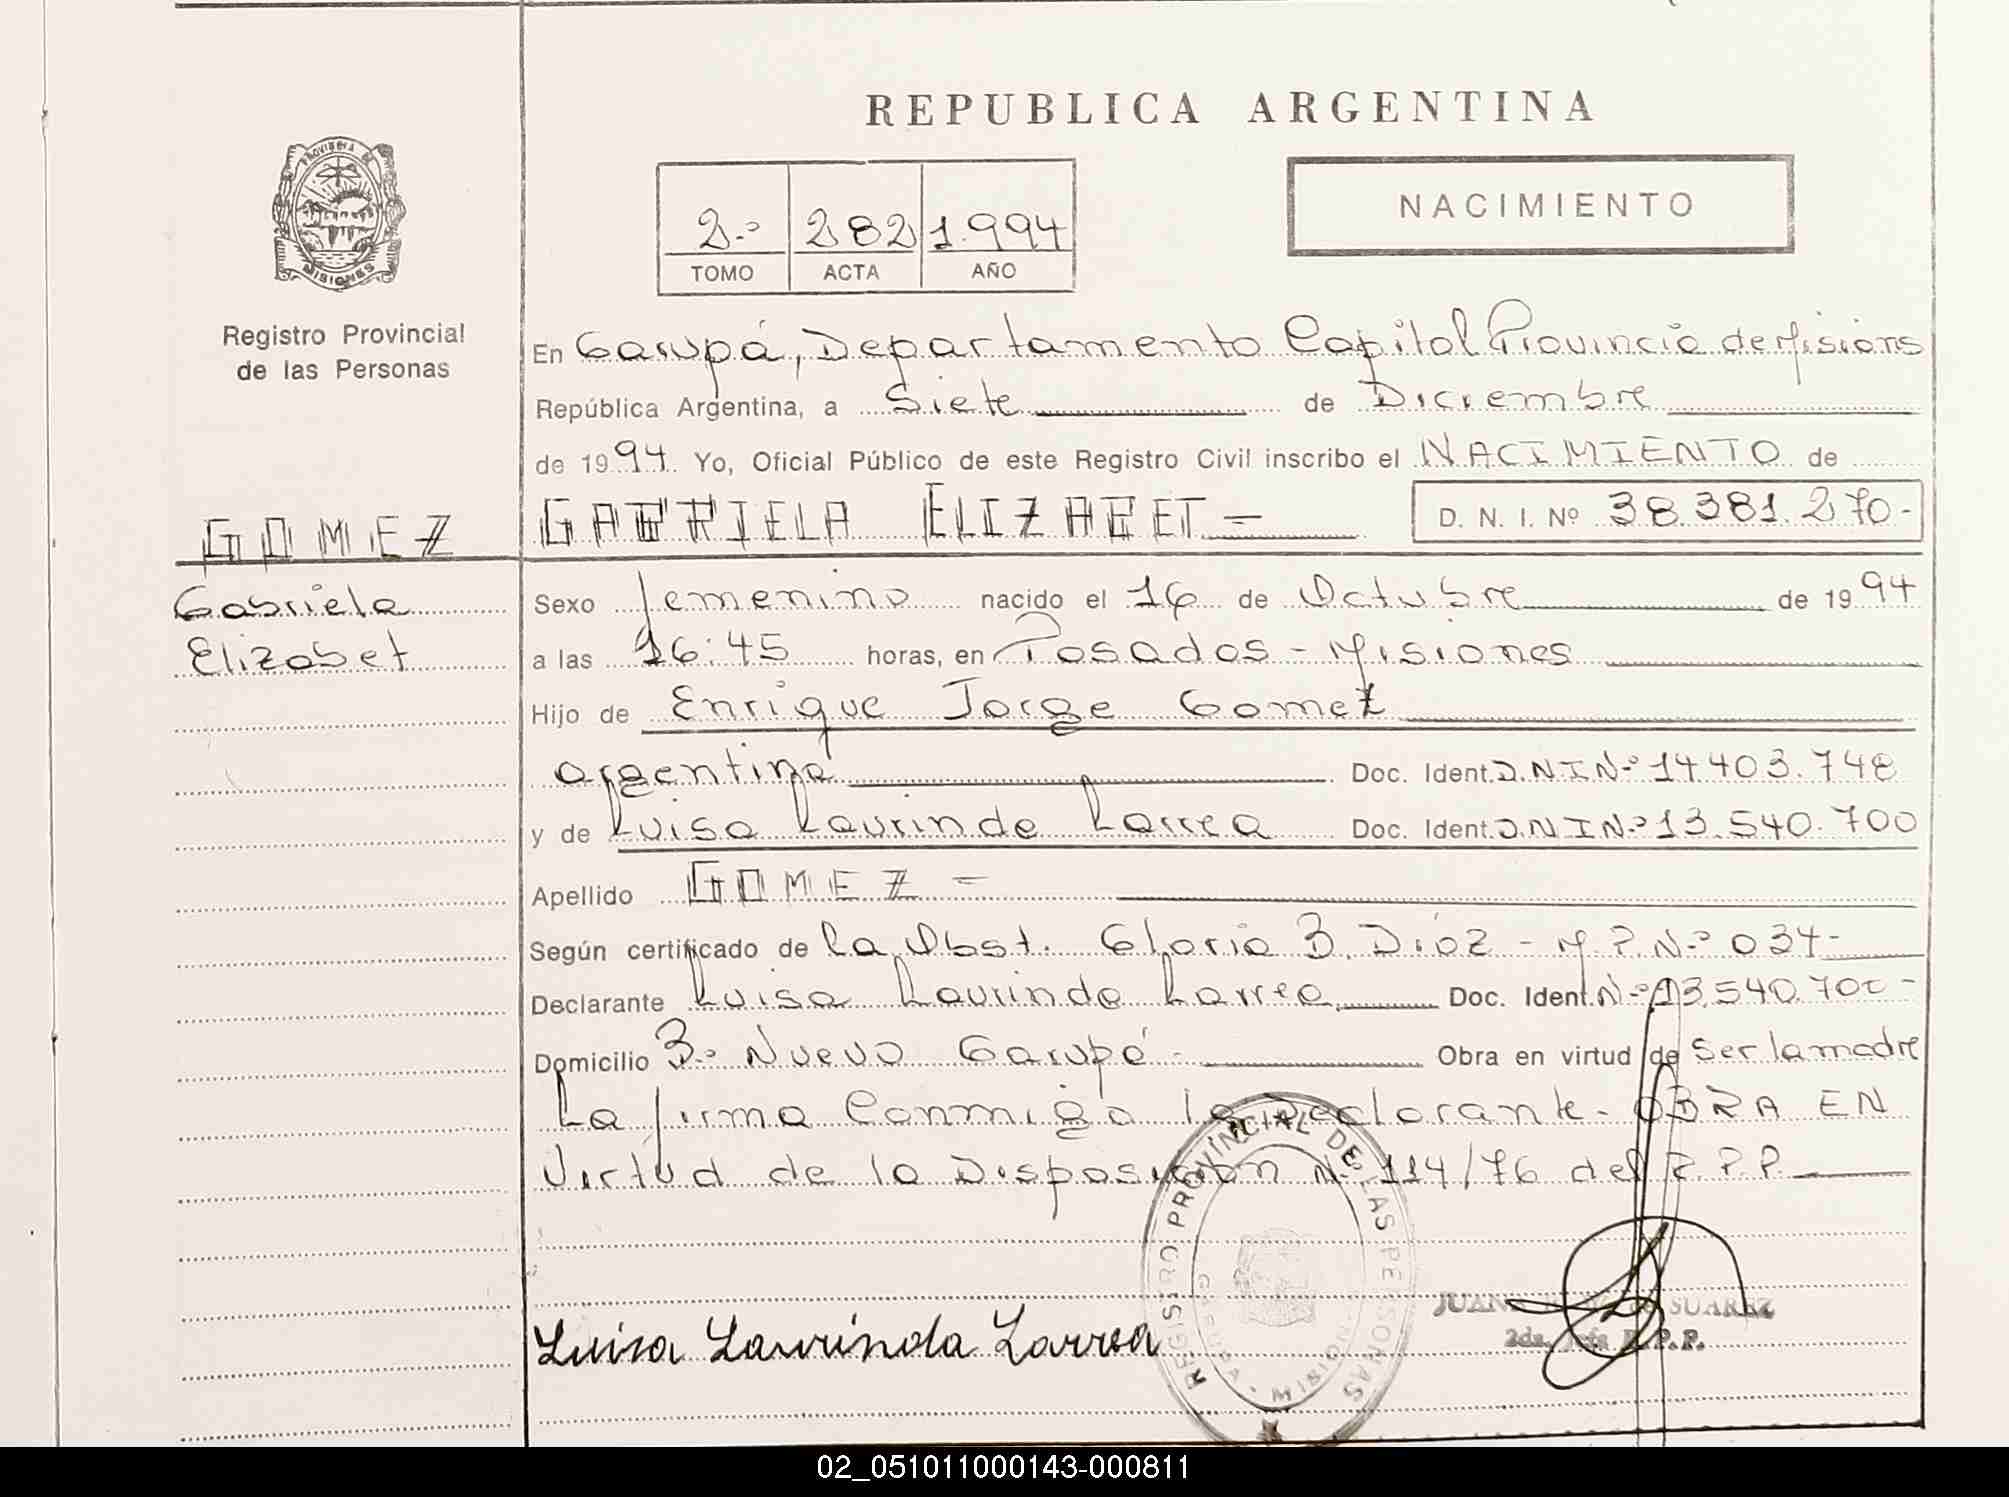 REPUBLICA ARGENTINA
PROVINCIA DE
MISIONES
2.º 282 1.994
TOMO ACTA AÑO
NACIMIENTO
Registro Provincial
de las Personas
En Garupá, Departamento Capital Provincia de Misiones
República Argentina, a Siete de Diciembre
de 1994. Yo, Oficial Público de este Registro Civil inscribo el NACIMIENTO de
GOMEZ
Gabriela
Elizabet
GABRIELA ELIZABET =
D. N. I. Nº 38.381.270-
Sexo femenino nacido el 16 de Octubre de 1994
a las 16:45 horas, en Posadas - Misiones
Hijo de Enrique Jorge Gomez
argentina Doc. Ident. D.N.I N.º 14.403.748
y de Luisa Laurinda Larrea Doc. Ident. D.N.I N.º 13.540.700
Apellido GOMEZ =
Según certificado de La Obst. Gloria B. Diaz - M.P.N.º 034-
Declarante Luisa Laurinda Larrea Doc. Ident. N.º 13.540.700-
Domicilio B.º Nuevo Garupá - Obra en virtud de Ser la madre
La firma Conmigo la Declarante. OBRA EN
Virtud de la Disposición Nº 114/76 del R.P.P.
Luisa Laurinda Larrea
REGISTRO PROVINCIAL DE LAS PERSONAS
JUAN SUAREZ
2da. R.P.P.
02_051011000143-000811